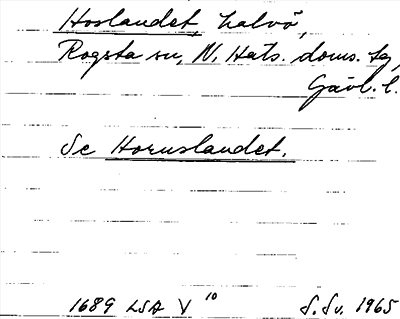 Hoslandet, halvö,
Rogsta sn, N. Häls. doms. tg,
Gävl. l.
Se Hornslandet.
1689 LSA V 10
S. Sv. 1965